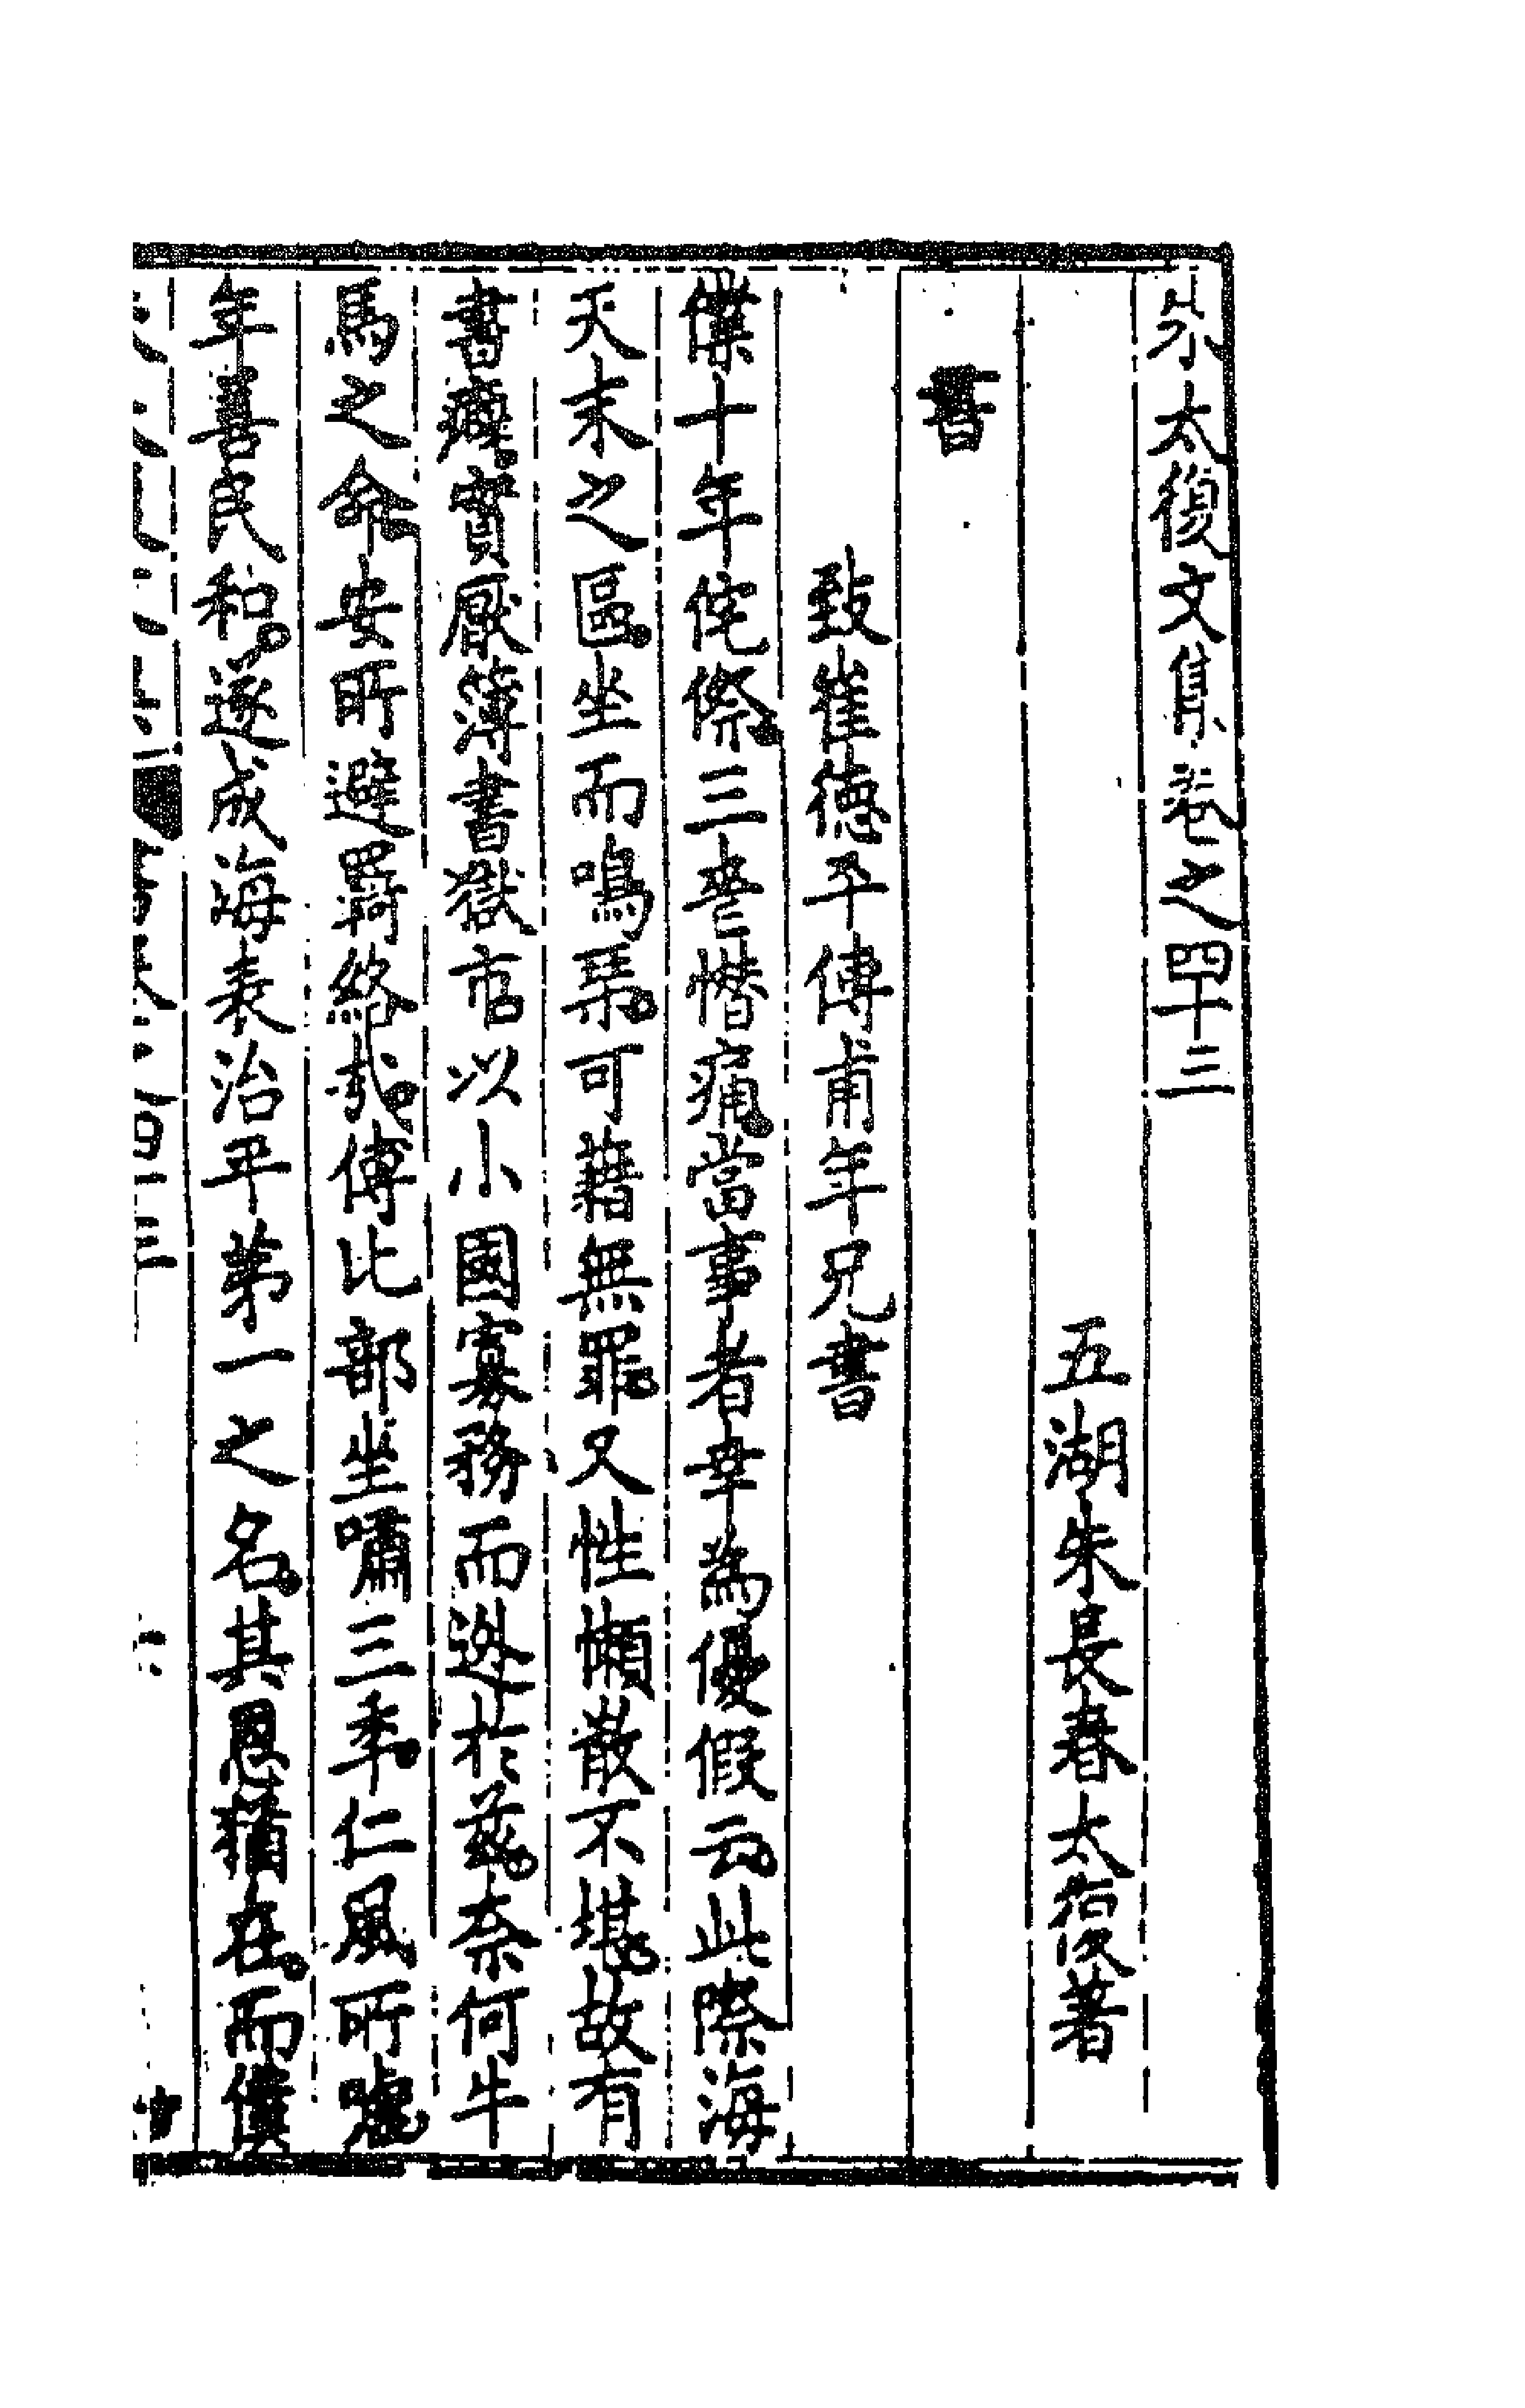 朱太復文集卷之四十三
五湖朱長春太復著
書
致崔德平傅甫年兄書
僕十年侘傺三喪憯痛當事者幸為優假云此際海
天末之區坐而鳴琹可藉無罪又性懶散不堪故有
書癖實厭簿書獄市以小國寡務而迯於兹奈何牛
馬之命安所避羇絡哉傅比部坐嘯三年仁風所噓
年喜民和遂成海表治平第一之名其恩猶在而僕